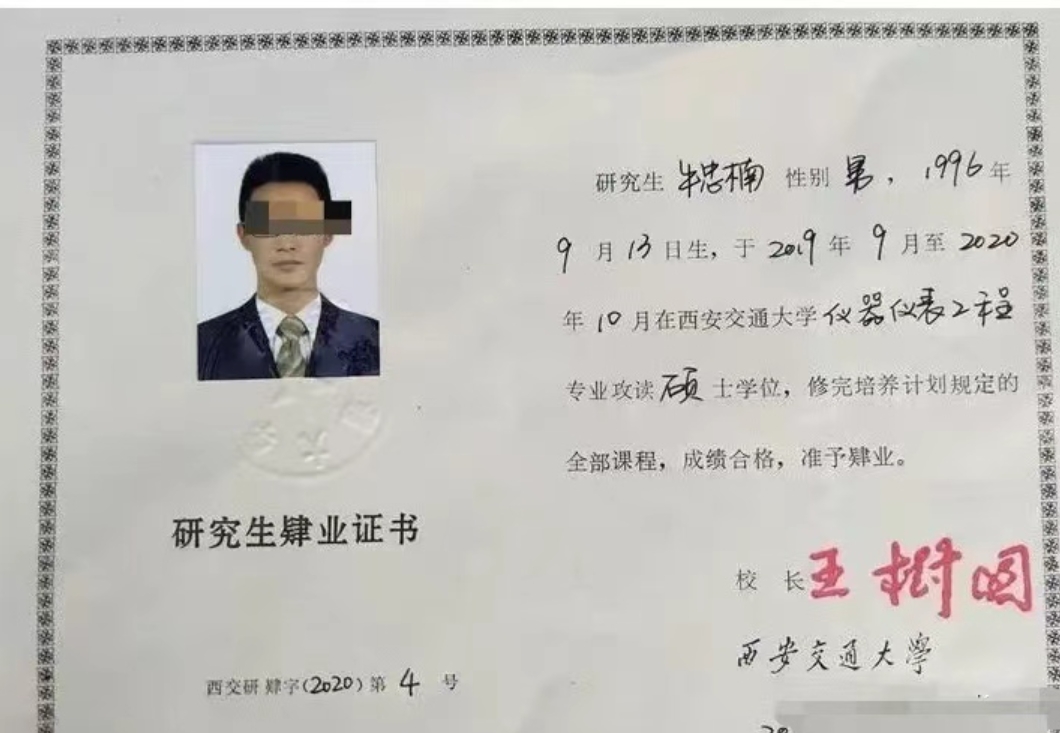 研究生 牛忠楠 性别 男，1996年
9月13日生，于2019年9月至2020
年10月在西安交通大学仪器仪表工程
专业攻读硕士学位，修完培养计划规定的
全部课程，成绩合格，准予肄业。
研究生肄业证书
校 长 王树国
西安交通大学
西交研 肄字(2020)第 4 号